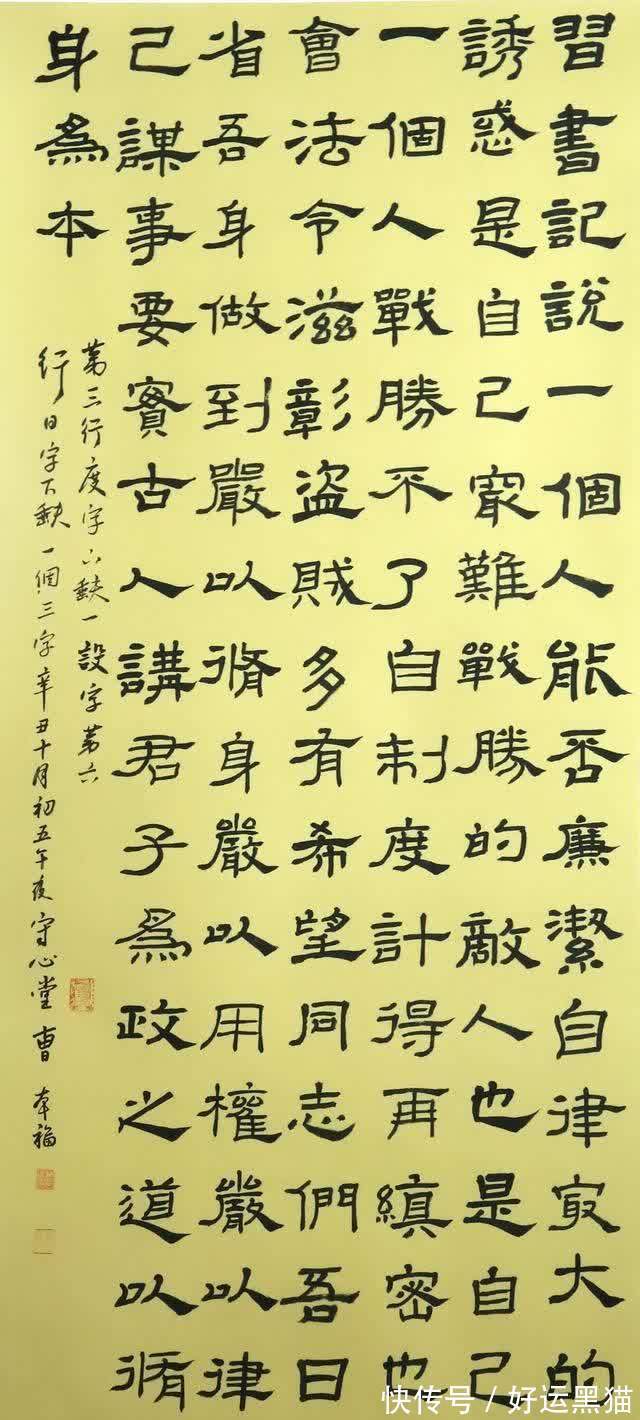 習書記說一個人能否廉潔自律㝡大的
誘惑是自己㝡難戰勝的敵人也是自己
一個人戰勝不了自制度計得再縝密也
會法令滋彰盜賊多有希望同志們吾日
省吾身做到嚴以脩身嚴以用權嚴以律
己謀事要實古人講君子為政之道以脩
身為本
第三行度字下缺一設字第六
行日字下缺一個三字辛丑十月初五午夜守心堂曹本福
快传号 / 好运黑猫